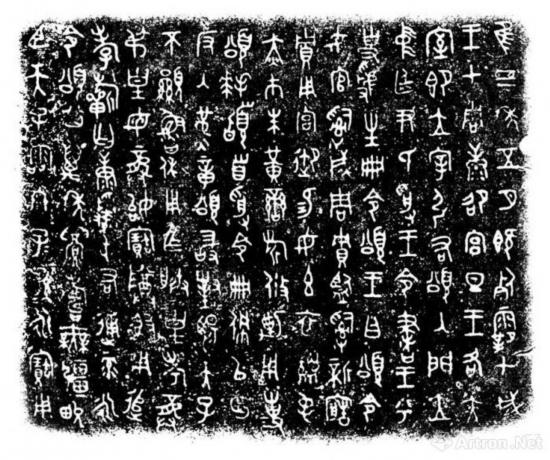 隹三年五月既死霸甲戌
王才周康卲宮旦王各大
室即立宰引右頌入門立
中廷尹氏受王令書王乎
史虢生冊令頌王曰頌令
女官𤔲成周賈監𤔲新造
賈用宮御易女玄衣黹屯
赤巿朱黃鑾旂攸勒用事
頌拜稽首受令冊佩以出
反入堇章頌敢對揚天子
不顯魯休用乍朕皇考龏
弔皇母龏始寶尊鼎用追
孝祈匄康屯右通彔永
令頌其萬年眉壽無疆畯
臣天子霝冬子孫永寶用
Artron.Net